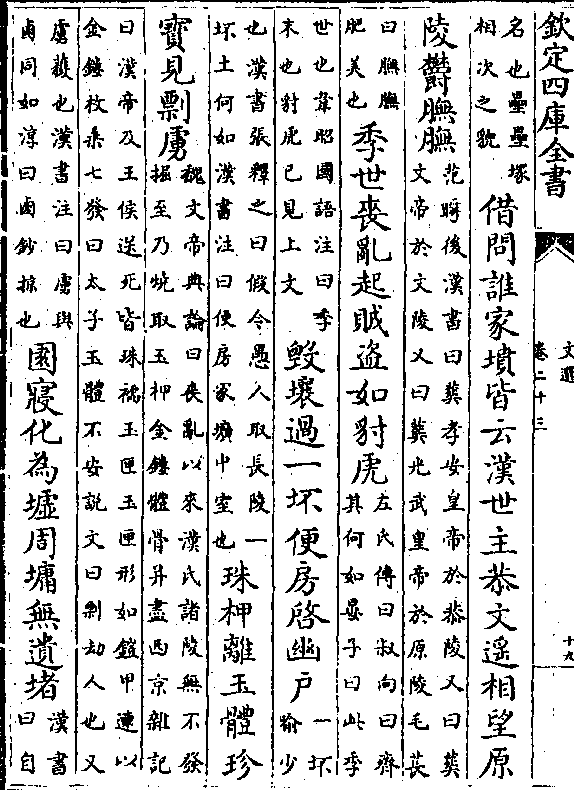 欽定四庫全書
文選
卷二十三
十九
名也壘壘塚
相次之貌
借問誰家墳皆云漢世主恭文遙相望原
陵鬱膴膴
范曄後漢書曰葬孝安皇帝於恭陵又曰葬
文帝於文陵又曰葬光武皇帝於原陵毛萇
曰膴膴
肥美也
季世喪亂起賊盜如豺虎
左氏傳曰叔向曰齊
其何如晏子曰此季
世也韋昭國語注曰季
末也豺虎已見上文
毀壞過一坏便房啓幽户
一坏
喻少
也漢書張釋之曰假令愚人取長陵一
坏土何如漢書注曰便房冢壙中室也
珠柙離玉體珍
寶見剽虜
魏文帝典論曰喪亂以來漢氏諸陵無不發
掘至乃燒取玉柙金鏤體骨并盡西京雜記
曰漢帝及王侯送死皆珠襦玉匣玉匣形如鎧甲連以
金鏤枚乘七發曰太子玉體不安説文曰剽劫人也又
虜獲也漢書注曰虜與
鹵同如淳曰鹵鈔掠也
園寢化為墟周墉無遺堵
漢書
曰自